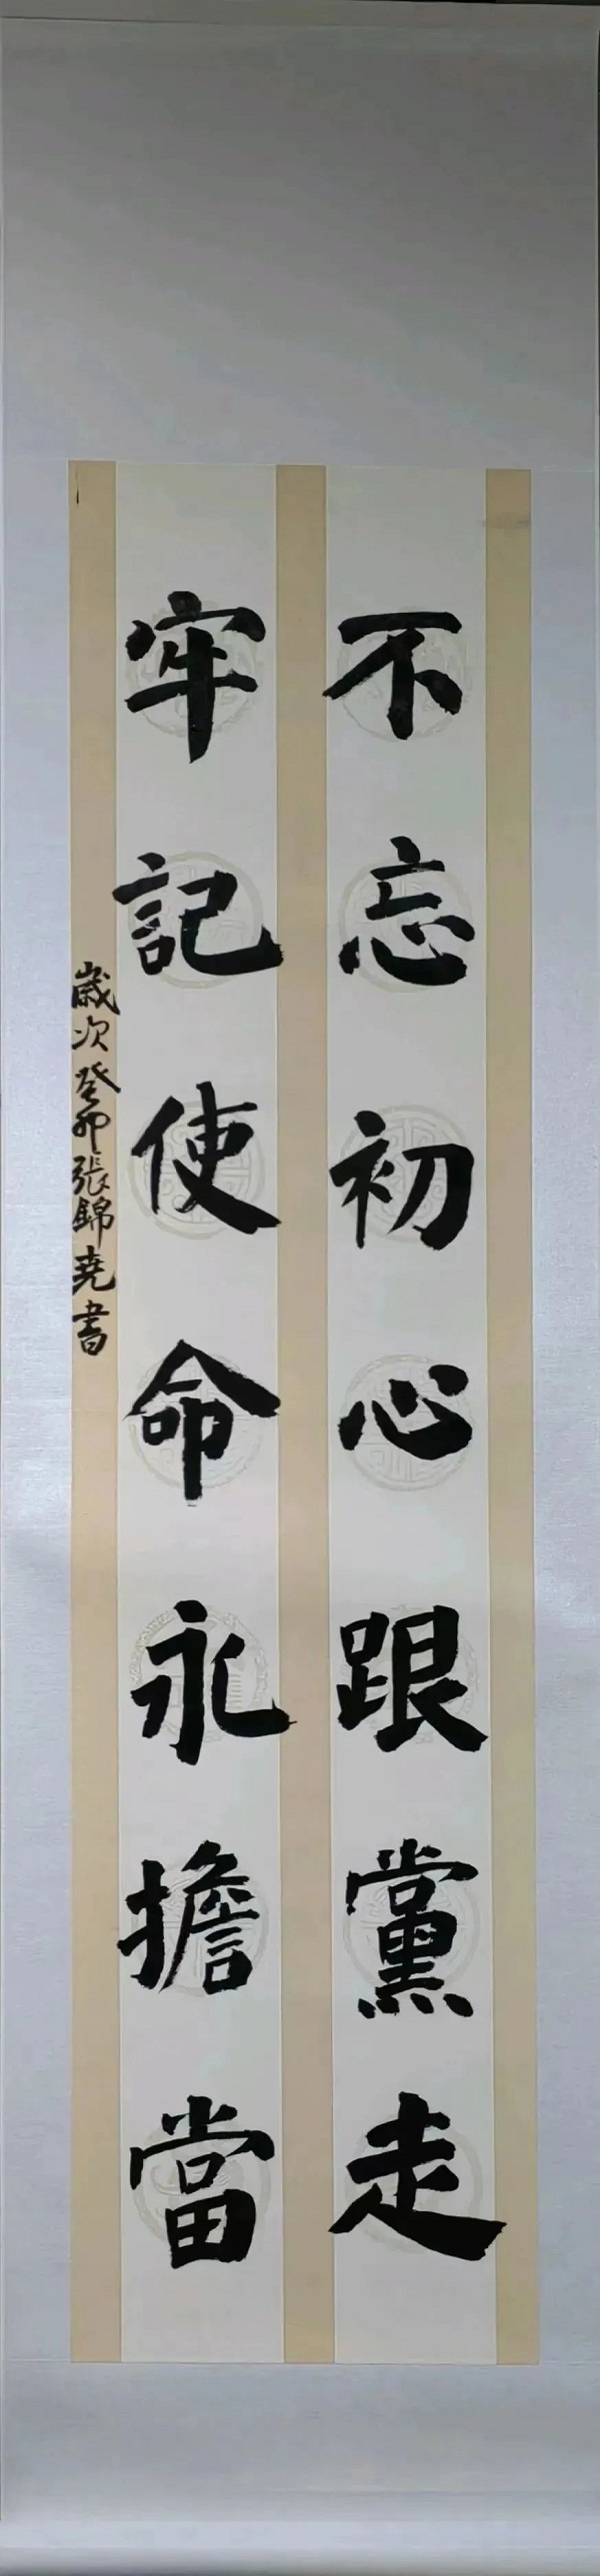 不忘初心跟黨走
牢記使命永擔當
歲次癸卯張錦堯書